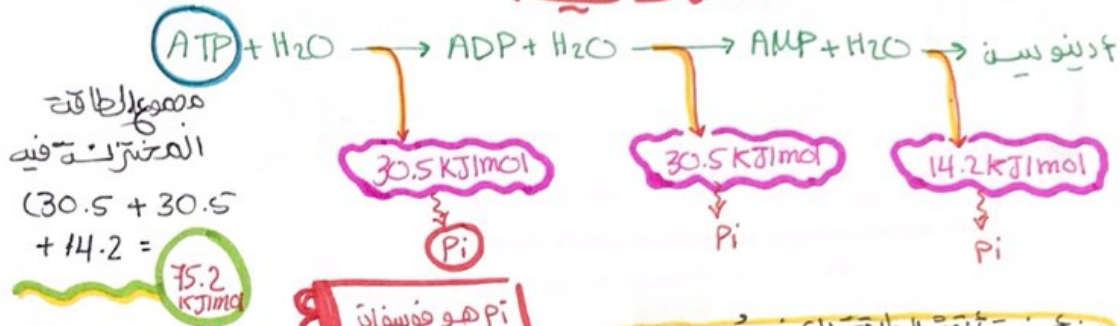 ATP + H2O → ADP + H2O → AMP + H2O → أدينوسين
مجموع الطاقة
المختزنة فيه
(30.5 + 30.5
+ 14.2 =
75.2
KJ/mol
30.5 KJ/mol
30.5 KJ/mol
14.2 KJ/mol
Pi
Pi
Pi
Pi هو فوسفات